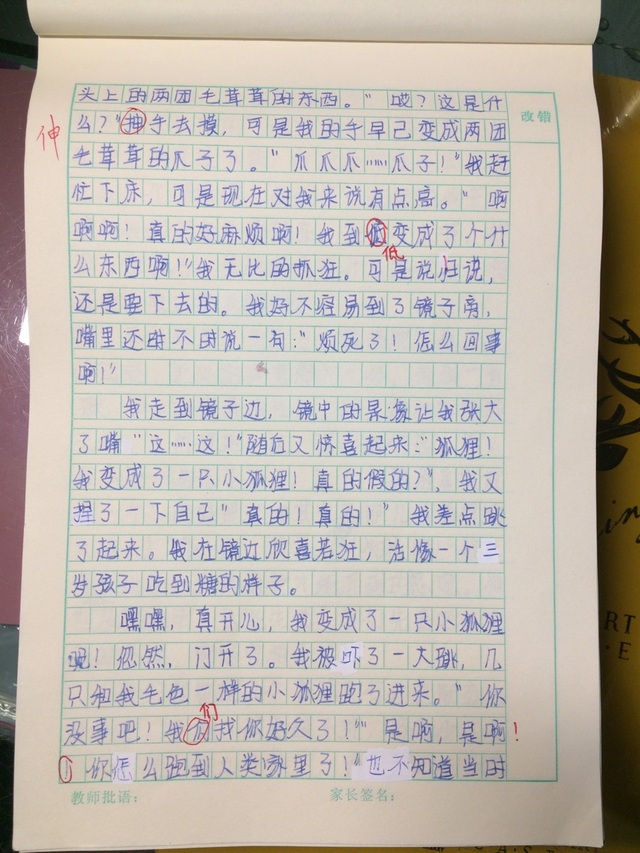 头上的两团毛茸茸的东西。“哎？这是什
改错
么？”抻手去摸，可是我的手早已变成两团
伸
毛茸茸的爪子了。“爪爪爪……爪子！”我赶
忙下床，可是现在对我来说有点高。“啊
啊啊！真的好麻烦啊！我到底变成了个什
低
么东西啊！”我无比的抓狂。可是说归说，
还是要下去的。我好不容易到了镜子旁，
嘴里还时不时说一句：“烦死了！怎么回事
啊！”
我走到镜子边，镜中的景象让我张大
了嘴“这……这！”随后又惊喜起来：“狐狸！
我变成了一只小狐狸！真的假的？”，我又
捏了一下自己“真的！真的！”我差点跳
了起来。我在镜边欣喜若狂，活像一个三
岁孩子吃到糖的样子。
嘿嘿，真开心，我变成了一只小狐狸
呢！忽然，门开了。我被吓了一大跳，几
只和我毛色一样的小狐狸跑了进来。“你
们
没事吧！我们找你好久了！”“是啊，是啊！
你怎么跑到人类家里了！”也不知道当时
教师批语：
家长签名：